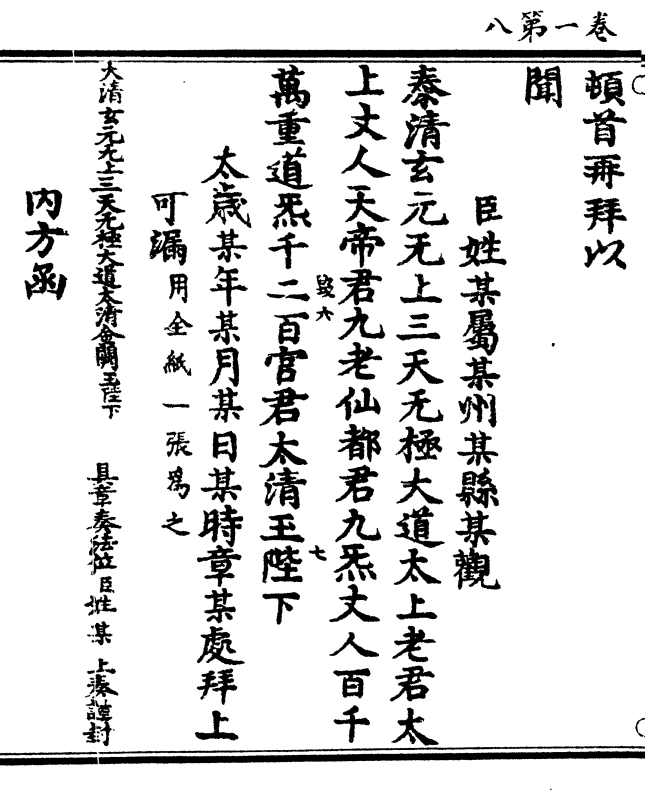 八第一卷
頓首再拜以
聞
臣姓某屬某州某縣某觀
泰清玄元无上三天无極大道太上老君太
上丈人天帝君九老仙都君九炁丈人百千
萬重道炁千二百官君太清玉陛下
六
七
太歲某年某月某日某時章某處拜上
可漏用全紙一張為之
大清玄元无上三天无極大道太清金闕玉陛下 具章奏法位臣姓某 上奏謹封
內方函